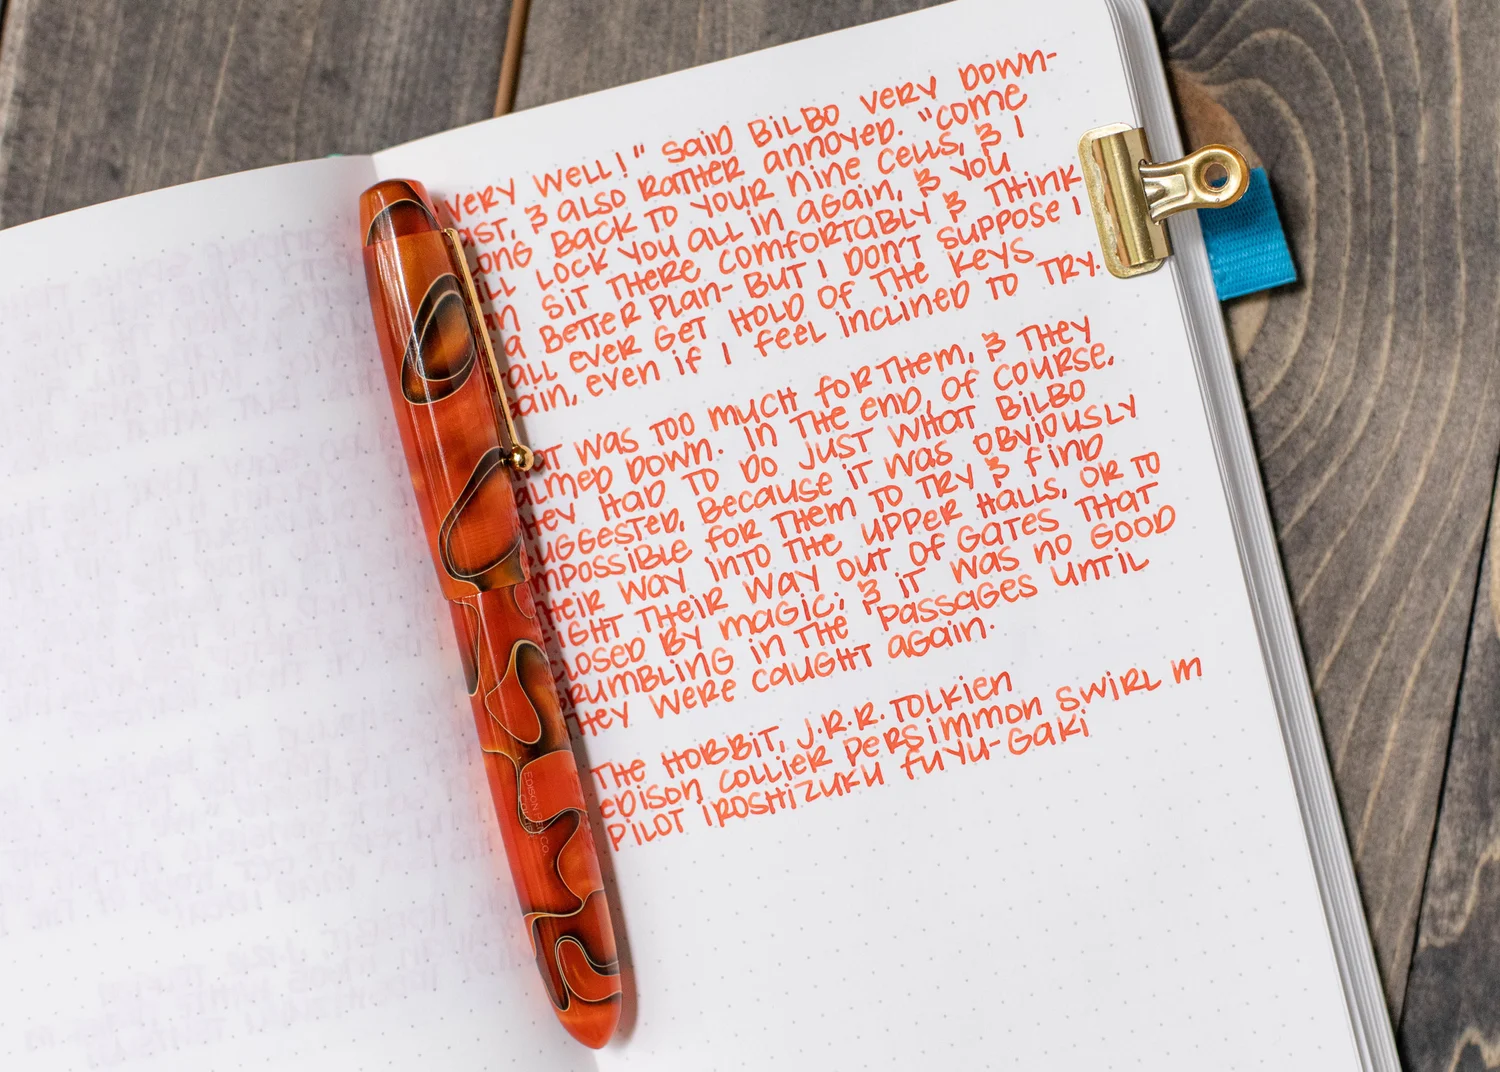 very well!" said Bilbo very down-
ast, & also rather annoyed. "Come
ong back to your nine cells, & I
ill lock you all in again, & you
an sit there comfortably & think
a better plan- but I don't suppose I
all ever get hold of the keys
ain, even if I feel inclined to try.
at was too much for them, & they
almed down. In the end, of course,
hey had to do just what Bilbo
uggested, because it was obviously
mpossible for them to try & find
heir way into the upper halls, or to
ight their way out of gates that
losed by magic; & it was no good
rumbling in the passages until
hey were caught again.
The Hobbit, J.R.R. Tolkien
Edison Collier Persimmon Swirl M
Pilot Iroshizuku Fuyu-gaki
EDISON PEN CO.